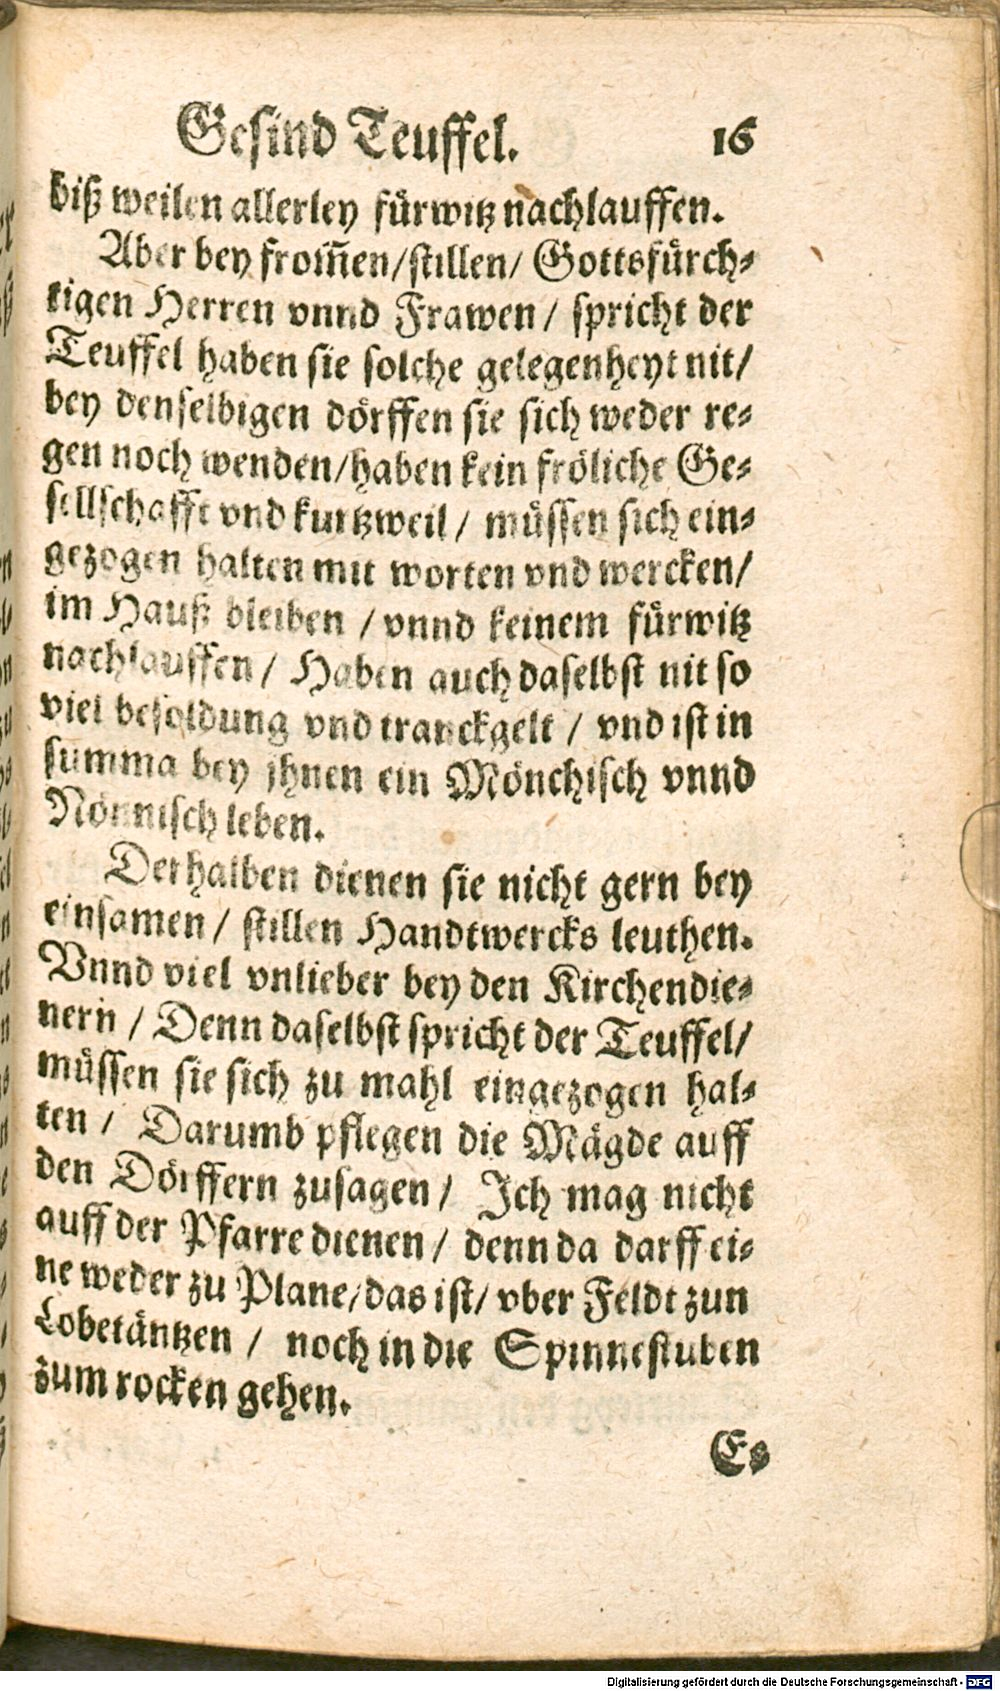 Gesind Teuffel. 16
biß weilen allerley fürwitz nachlauffen.
Aber bey from̃en/stillen/ Gottsfürch⸗
tigen Herren vnnd Frawen/ spricht der
Teuffel haben sie solche gelegenheyt nit/
bey denselbigen dörffen sie sich weder re⸗
gen noch wenden/haben kein fröliche Ge⸗
sellschafft vnd kurtzweil/ müssen sich ein⸗
gezogen halten mit worten vnd wercken/
im Hauß bleiben / vnnd keinem fürwitz
nachlauffen/ Haben auch daselbst nit so
viel besoldung vnd tranckgelt / vnd ist in
summa bey jhnen ein Mönchisch vnnd
Nönnisch leben.
Derhalben dienen sie nicht gern bey
einsamen/ stillen Handtwercks leuthen.
Vnnd viel vnlieber bey den Kirchendie⸗
nern / Denn daselbst spricht der Teuffel/
müssen sie sich zu mahl eingezogen hal⸗
ten / Darumb pflegen die Mägde auff
den Dörffern zusagen/ Ich mag nicht
auff der Pfarre dienen/ denn da darff ei⸗
ne weder zu Plane/das ist/ vber Feldt zun
Lobetäntzen / noch in die Spinnestuben
zum rocken gehen.
Es
Digitalisierung gefördert durch die Deutsche Forschungsgemeinschaft - DFG